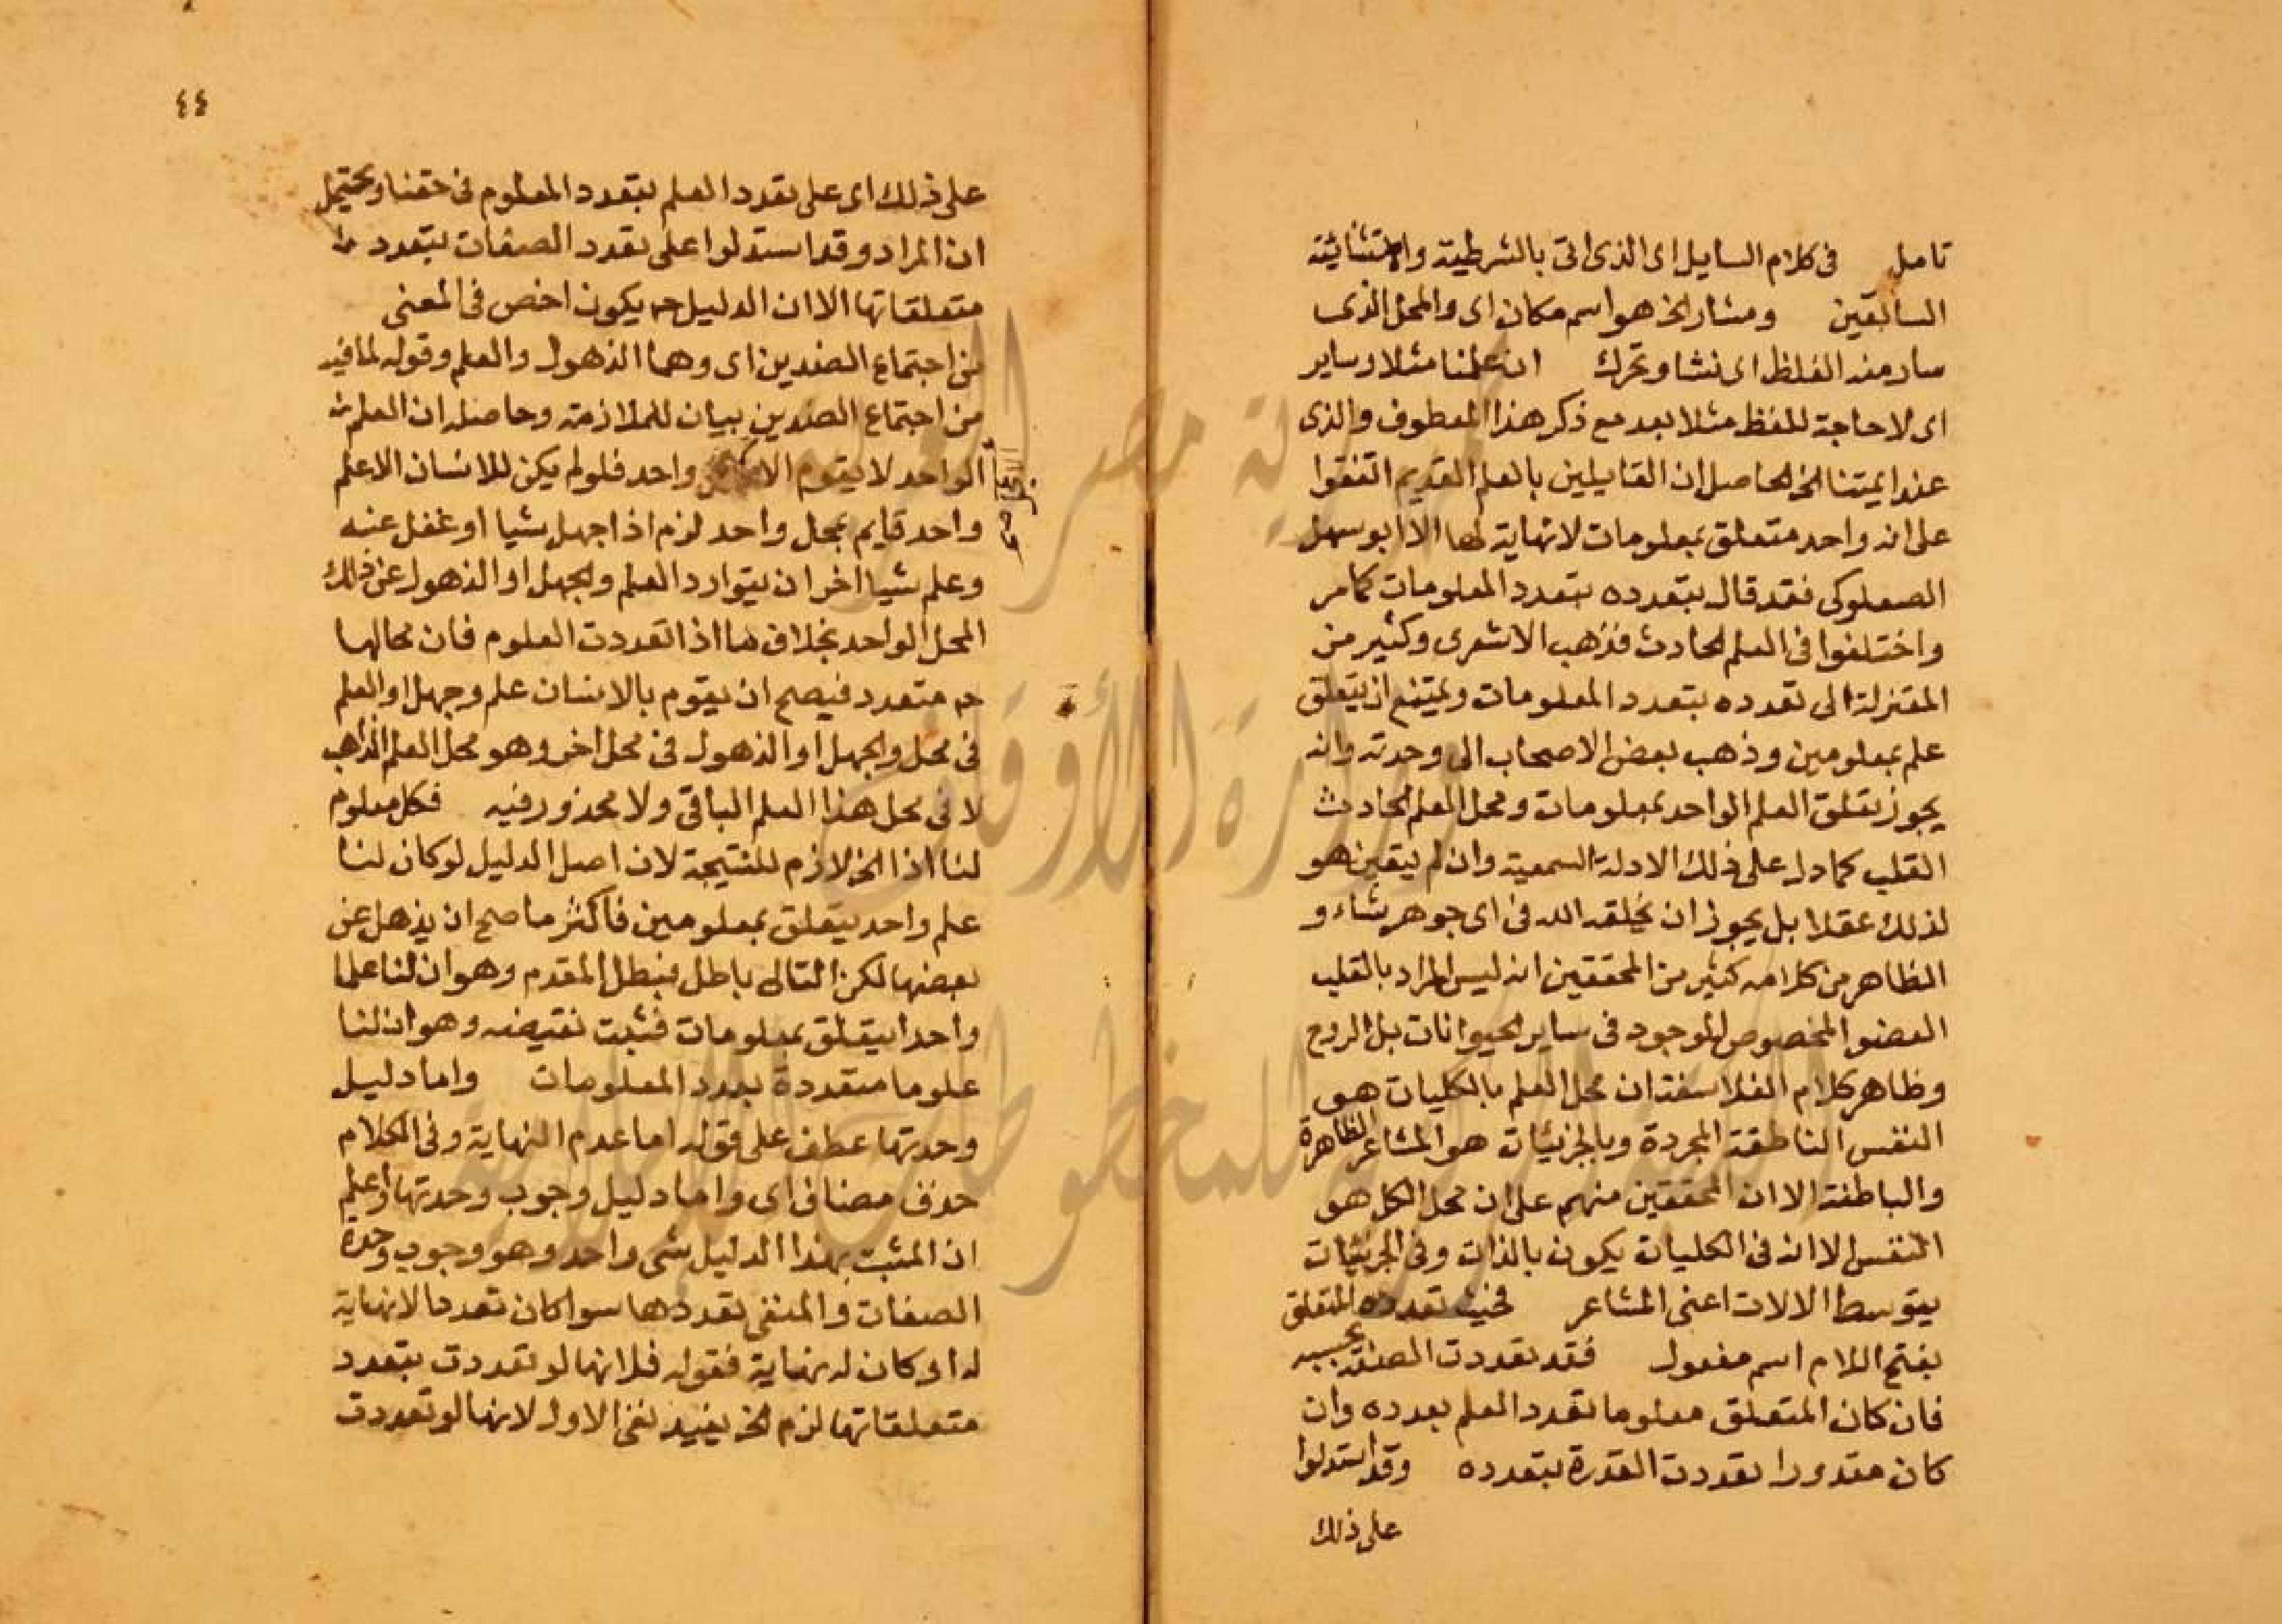 تامل في كلام السايل اى الذى اتى بالشرطية والاستثنائية
السابقين ومشار الخ هو اسم مكان اى والمحل الذى
سار منه الغلط اى نشا وتحرك ان علمنا مثلا وساير
اى لا حاجة للفظ مثلا بعد مع ذكر هذا المعطوف والذى
عند ايمتنا الخ الحاصل ان القايلين بالعلم القديم اتفقوا
على انه واحد متعلق بمعلومات لا نهاية لها الا ابو سهل
الصعلوكى فقد قال بتعدده بتعدد المعلومات كما مر
واختلفوا فى العلم الحادث فذهب الاشعرى وكثير من
المعتزلة الى تعدده بتعدد المعلومات ويمتنع ان يتعلق
علم بمعلومين وذهب بعض الاصحاب الى وحدته وانه
يجوز تعلق العلم الواحد بمعلومات ومحل العلم الحادث
القلب كما دل على ذلك الادلة السمعية وان لم يتعين هو
لذلك عقلا بل يجوز ان يخلقه الله فى اى جوهر شاء و
الظاهر من كلام كثير من المحققين انه ليس المراد بالقلب
العضو المخصوص الموجود فى ساير الحيوانات بل الروح
وظاهر كلام الفلاسفة ان محل العلم بالكليات هى
النفس الناطقة المجردة وبالجزئيات هو المشاعر الظاهرة
والباطنة الا ان المحققين منهم على ان محل الكل هو
النفس الا انه فى الكليات يكون بالذات وفى الجزئيات
بتوسط الالات اعنى المشاعر فحيث تعدده المتعلق
بفتح اللام اسم مفعول فقد تعددت الصفة بحسبه
فان كان المتعلق معلوما تعدد العلم بعدده وان
كان مقدورا تعددت القدرة بتعدده وقد استدلوا
على ذلك
٤٤
على ذلك اى على تعدد العلم بتعدد المعلوم فى حقنا ويحتمل
ان المراد وقد استدلوا على تعدد الصفات بتعدد
متعلقاتها الا ان الدليل ح يكون اخص فى المعنى
من اجتماع الضدين اى وهما الذهول والعلم وقوله لما فيه
من اجتماع الضدين بيان للملازمة وحاصله ان العلم
الواحد لا يقوم الا واحد فلو لم يكن للانسان الا علم
واحد قايم بمحل واحد لزم اذا جهل شيا او غفل عنه
وعلم شيا اخر ان يتوارد العلم والجهل او الذهول عن ذلك
المحل الواحد بخلاف ما اذا تعددت العلوم فان محالها
ح متعدد فيصح ان يقوم بالانسان علم وجهل او العلم
فى محل والجهل او الذهول فى محل اخر وهو محل العلم الذاهب
لا فى محل هذا العلم الباقى ولا محذور فيه فكل معلوم
لنا اذا الخ لازم للنتيجة لان اصل الدليل لو كان لنا
علم واحد يتعلق بمعلومين فاكثر ما صح ان يذهل عن
بعضها لكن التالى باطل فبطل المقدم وهو ان لنا علما
واحدا يتعلق بمعلومات فثبت نقيضه وهو ان لنا
علوما متعددة بعدد المعلومات واما دليل
وحدتها عطف على قوله اما عدم النهاية وفى الكلام
حذف مضاف اى واما دليل وجوب وحدتها واعلم
ان المثبت بهذا الدليل شى واحد وهو وجوب وحدة
الصفات والمنفى تعددها سوا كان تعددا لا نهاية
له او كان له نهاية فقوله فلانها لو تعددت بتعدد
متعلقاتها لزم الخ يفيد نفى الاول لانها لو تعددت